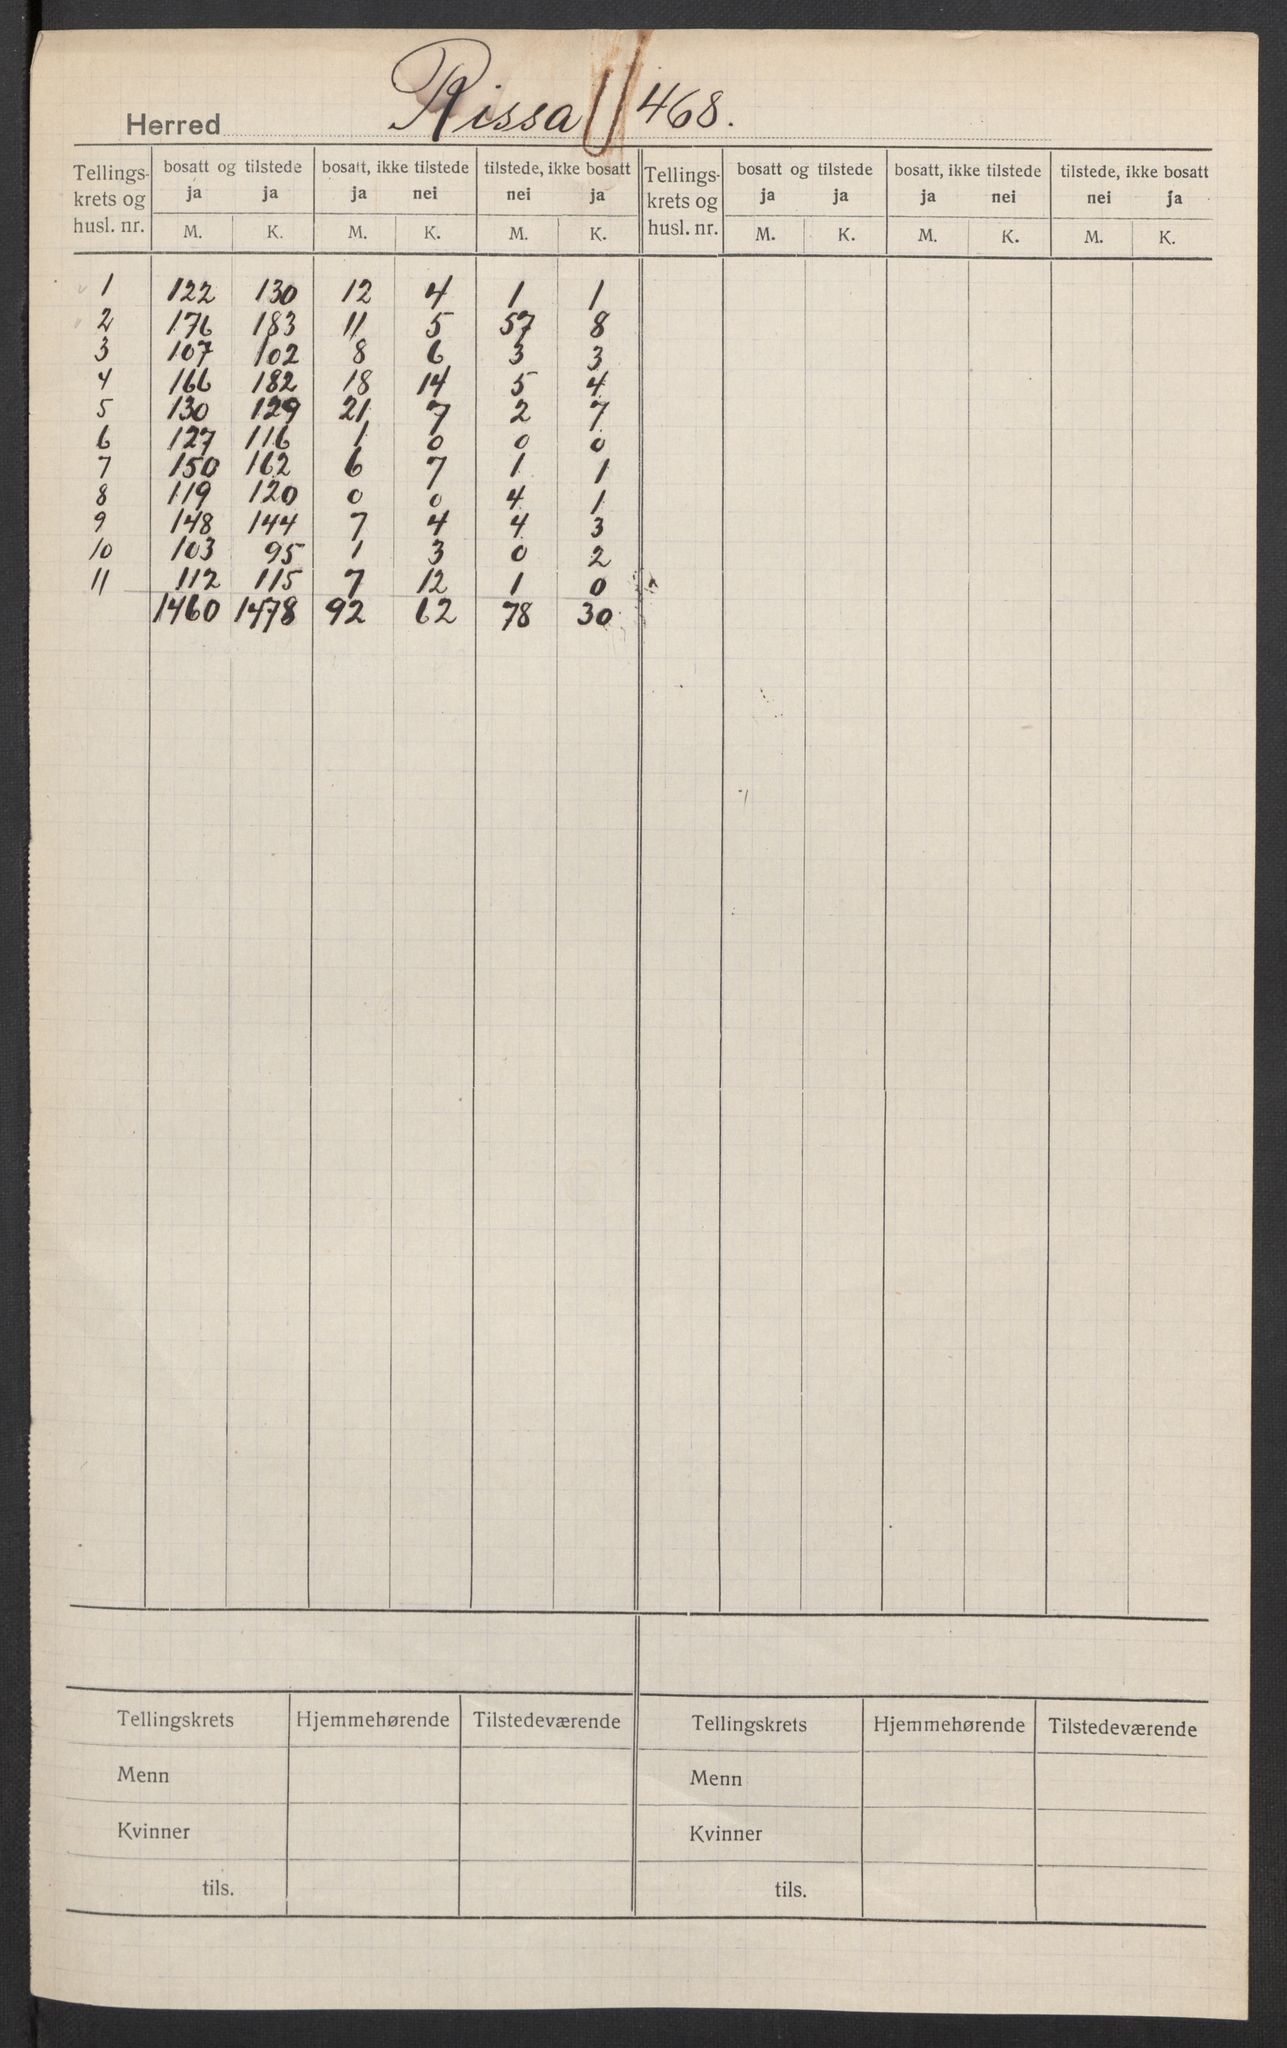 Herred Rissa 468.
Tellings- krets og husl. nr. bosatt og tilstede bosatt, ikke tilstede tilstede, ikke bosatt Tellings- krets og husl. nr. bosatt og tilstede bosatt, ikke tilstede tilstede, ikke bosatt
ja ja ja nei nei ja ja ja ja nei nei ja
M. K. M. K. M. K. M. K. M. K. M. K.
1 122 130 12 4 1 1
2 176 183 11 5 57 8
3 107 102 8 6 3 3
4 166 182 18 14 5 4
5 130 129 21 7 2 7
6 127 116 1 0 0 0
7 150 162 6 7 1 1
8 119 120 0 0 4 1
9 148 144 7 4 4 3
10 103 95 1 3 0 2
11 112 115 7 12 1 0
1460 1478 92 62 78 30
Tellingskrets Hjemmehørende Tilstedeværende Tellingskrets Hjemmehørende Tilstedeværende
Menn Menn
Kvinner Kvinner
tils. tils.